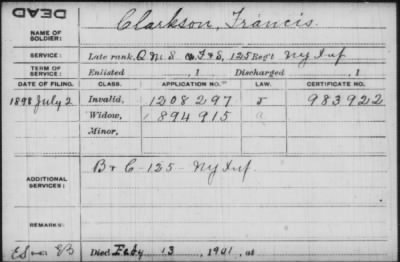 DEAD
NAME OF SOLDIER: Clarkson, Francis.
SERVICE: Late rank, Q M S Co. F&S, 125 Reg't NY Inf
TERM OF SERVICE: Enlisted , 1 Discharged , 1
DATE OF FILING. CLASS. APPLICATION NO. LAW. CERTIFICATE NO.
1898 July 2 Invalid, 1208297 983922
Widow, 894915 a
Minor,
ADDITIONAL SERVICES: B & C - 125 - NY Inf.
REMARKS:
ES EB Died Feby 13, 1901, at